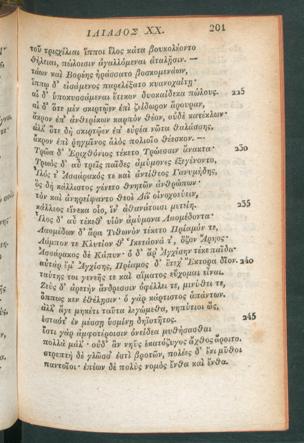 ΙΛΙΑΔΟΣ ΧΧ. 201
τοῦ τρισχίλιαι ἵπποι ἕλος κάτα βουκολέοντο
θήλειαι, πώλοισιν ἀγαλλόμεναι ἀταλῇσιν. —
τάων καὶ Βορέης ἠράσσατο βοσκομενάων,
ἵππῳ δ' εἰσάμενος παρελέξατο κυανοχαίτῃ·
αἱ δ' ὑποκυσσάμεναι ἔτεκον δυοκαίδεκα πώλους. 225
αἱ δ' ὅτε μὲν σκιρτῷεν ἐπὶ ζείδωρον ἄρουραν,
ἄκρον ἐπ' ἀνθερίκων καρπὸν θέον, οὐδὲ κατέκλων·
ἀλλ' ὅτε δὴ σκιρτῷεν ἐπ' εὐρέα νῶτα θαλάσσης,
ἄκρον ἐπὶ ῥηγμῖνος ἁλὸς πολιοῖο θέεσκον. —
Τρῶα δ' Ἐριχθόνιος τέκετο Τρώεσσιν ἄνακτα· 230
Τρωὸς δ' αὖ τρεῖς παῖδες ἀμύμονες ἐξεγένοντο,
Ἶλός τ' Ἀσσάρακός τε καὶ ἀντίθεος Γανυμήδης,
ὃς δὴ κάλλιστος γένετο θνητῶν ἀνθρώπων·
τὸν καὶ ἀνηρείψαντο θεοὶ Διὶ οἰνοχοεύειν,
κάλλεος εἵνεκα οἷο, ἵν' ἀθανάτοισι μετείη. 235
Ἶλος δ' αὖ τέκεθ' υἱὸν ἀμύμονα Λαομέδοντα·
Λαομέδων δ' ἄρα Τιθωνὸν τέκετο Πρίαμόν τε,
Λάμπον τε Κλυτίον θ' Ἱκετάονά τ', ὄζον Ἄρηος·
Ἀσσάρακος δὲ Κάπυν· ὁ δ' ἄρ' Ἀγχίσην τέκε παῖδα·
αὐτὰρ ἔμ' Ἀγχίσης, Πρίαμος δ' ἔτεχ' Ἕκτορα δῖον. 240
ταύτης τοι γενεῆς τε καὶ αἵματος εὔχομαι εἶναι.
Ζεὺς δ' ἀρετὴν ἄνδρεσσιν ὀφέλλει τε, μινύθει τε,
ὅππως κεν ἐθέλῃσιν· ὁ γὰρ κάρτιστος ἁπάντων.
ἀλλ' ἄγε μηκέτι ταῦτα λεγώμεθα, νηπύτιοι ὥς,
ἑσταότ' ἐν μέσσῃ ὑσμίνῃ δηϊοτῆτος. 245
ἔστι γὰρ ἀμφοτέροισιν ὀνείδεα μυθήσασθαι
πολλὰ μάλ'· οὐδ' ἂν νηῦς ἑκατόζυγος ἄχθος ἄροιτο.
στρεπτὴ δὲ γλῶσσ' ἐστὶ βροτῶν, πολέες δ' ἔνι μῦθοι
παντοῖοι· ἐπέων δὲ πολὺς νομὸς ἔνθα καὶ ἔνθα.